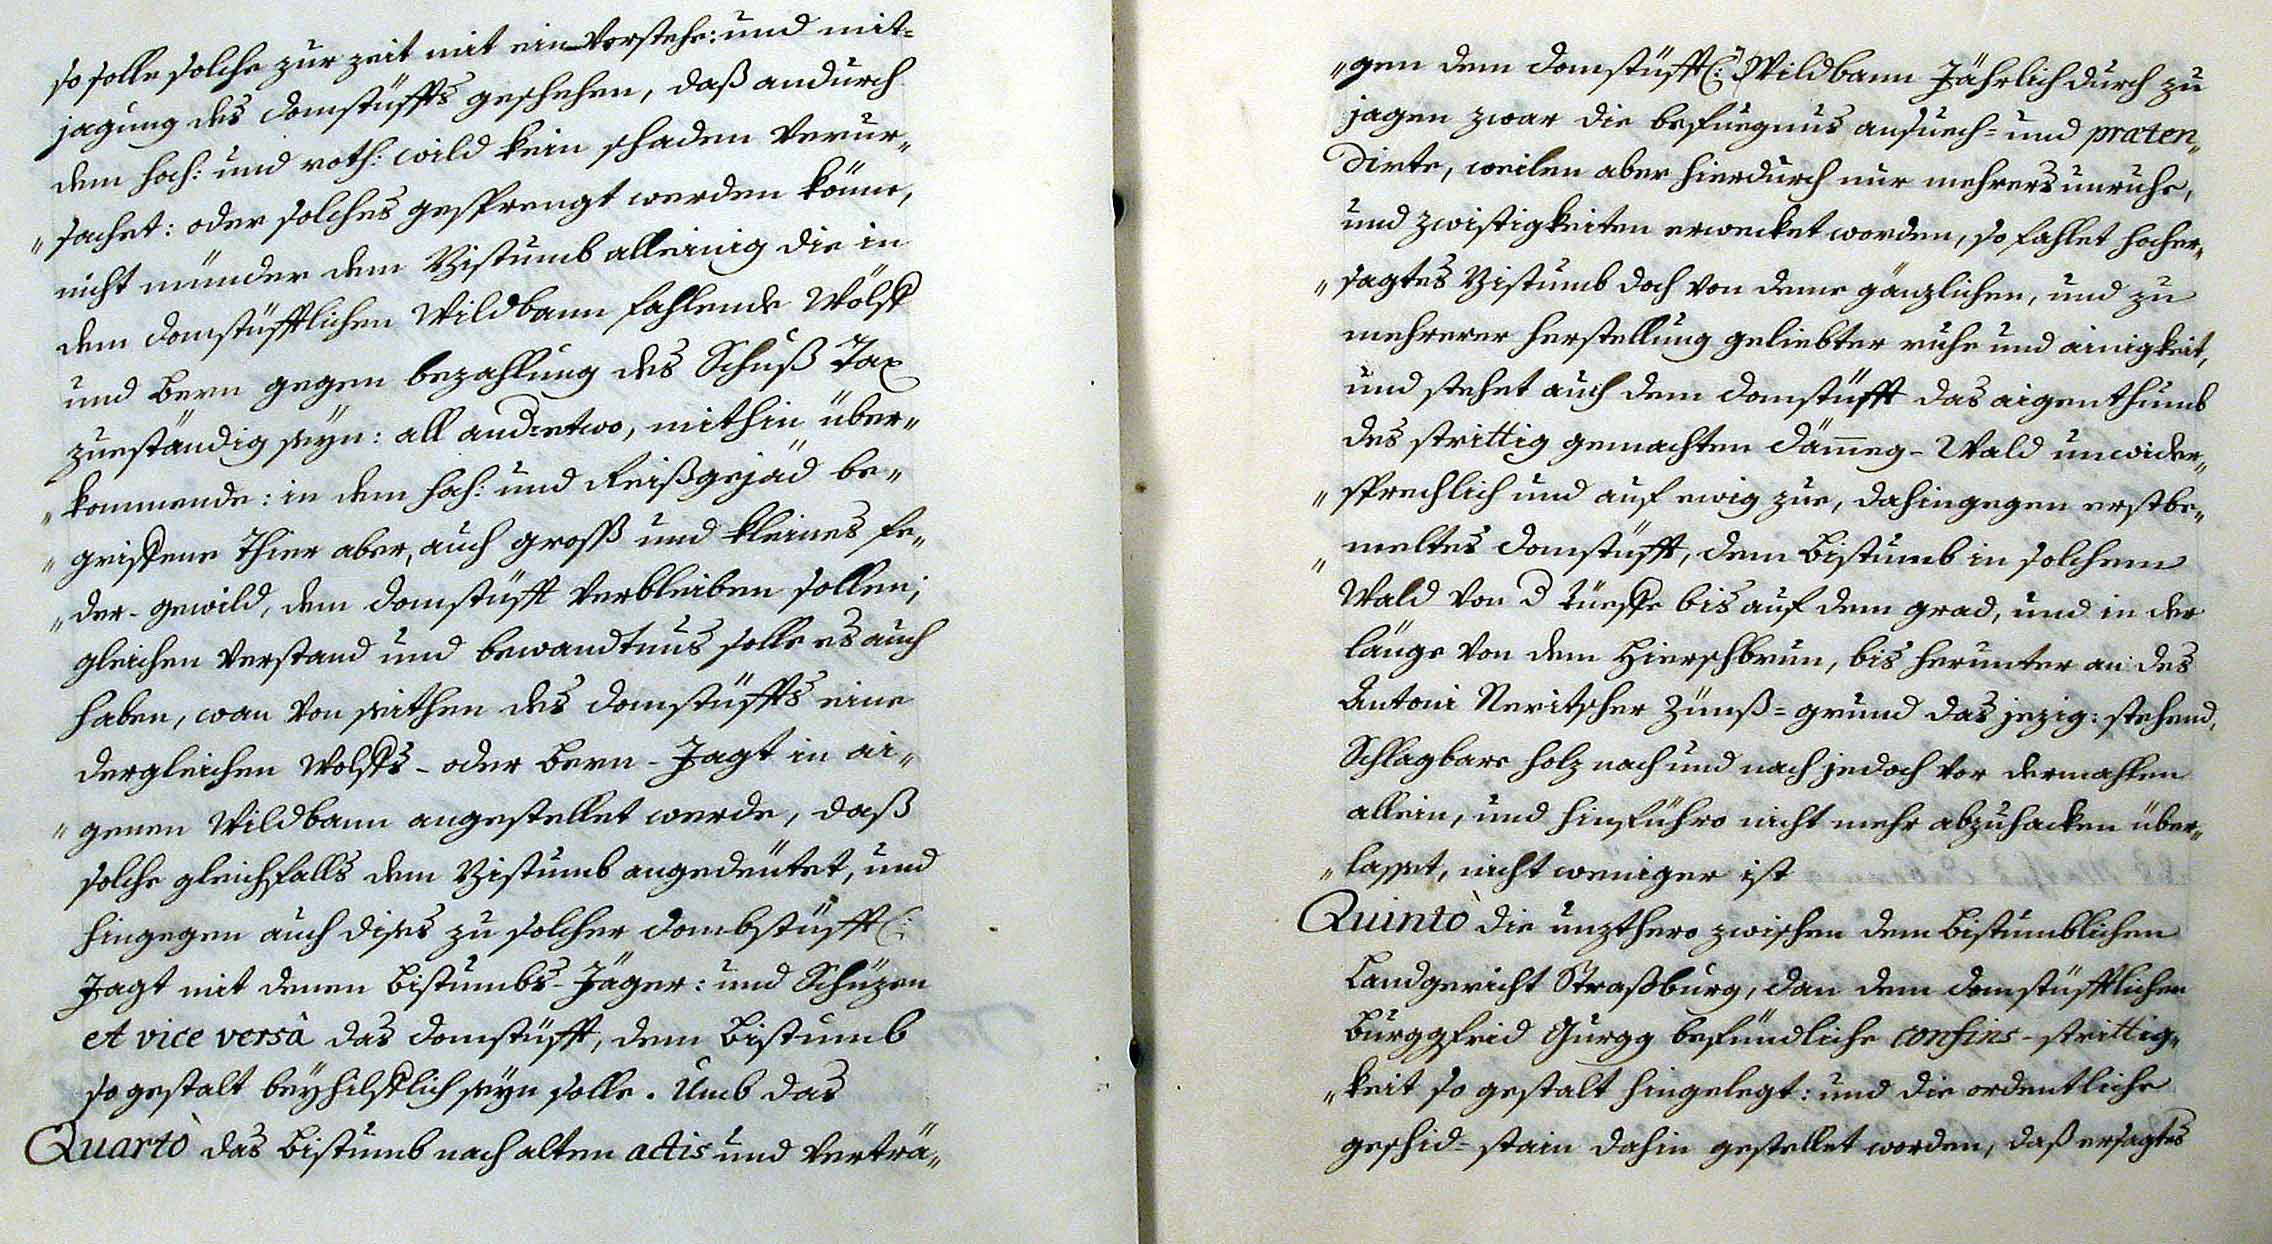 so solle solche zur zeit mit ein Vorstehe: und mit=
jagung des Domstüffts geschehen, daß andurch
dem hoch: und roth: wild kein schaden Verur„
„sachet: oder solches gesprengt werden könne,
nicht münder dem Bistumb alleinig die in
dem Domstüfftlichen Wildbann fahlende Wölff
und Bern gegen bezahlung des Schuß Tax
zueständig seyn: all anderwo, mithin über„
„kommende: in dem hoch: und Reißgejäd be„
„griffene Thier aber, auch groß und kleines fe„
„der-gewild, dem Domstüfft Verbleiben sollen;
gleichen Verstand und bewandtnus solle es auch
haben, wan Von seithen des Domstüffts eine
dergleichen Wolffs- oder Bern-Jagt in ai„
„genen Wildbann angestellet werde, daß
solche gleichfalls dem Bistumb angedeütet, und
hingegen auch dises zu solcher Dombstüfft(:
Jagt mit denen Bistumbs-Jäger: und Schüzen
et vice versà das Domstüfft, dem Bistumb
so gestalt beyhilfflich seyn solle. Umb das
Quartò das Bistumb nach alten actis und Verträ„
„gen dem Domstüfft(:) Wildbann Jährlich durch zu
jagen zwar die befuegnus ansuech= und præten„
dirte, weilen aber hierdurch nur mehrers unruhe,
und zwistigkeiten erwecket worden, so fahlet hocher„
„sagtes Bistumb doch von deme gänzlichen, und zu
mehrerer herstellung geliebter ruhe und ainigkeit,
und stehet auch dem Domstüfft das aigenthumb
des strittig gemachten Däm̅eg-Wald unwider„
„sprechlich und auf ewig zue, dahingegen erstbe„
„meltes Domstüfft, dem Bistumb in solchem
Wald Von d Tüeffe bis auf dem grad, und in der
länge Von dem Hierschbrun, bis herunter an des
Antoni Neritscher Zünß=grund das jezig: stehend,
Schlagbare holz nach und nach jedoch vor dermahlen
allein, und hinführo nicht mehr abzuhacken über„
„lasset, nicht weniger ist
Quintò die unzthero zwischen dem Bistumblichen
Landgericht Straßburg, dan dem Domstüfftlichen
Burggfrid Gurgg befündliche confins-strittig„
„keit so gestalt hingelegt: und die ordentliche
geschid-stain dahin gestellet worden, daß ersagtes